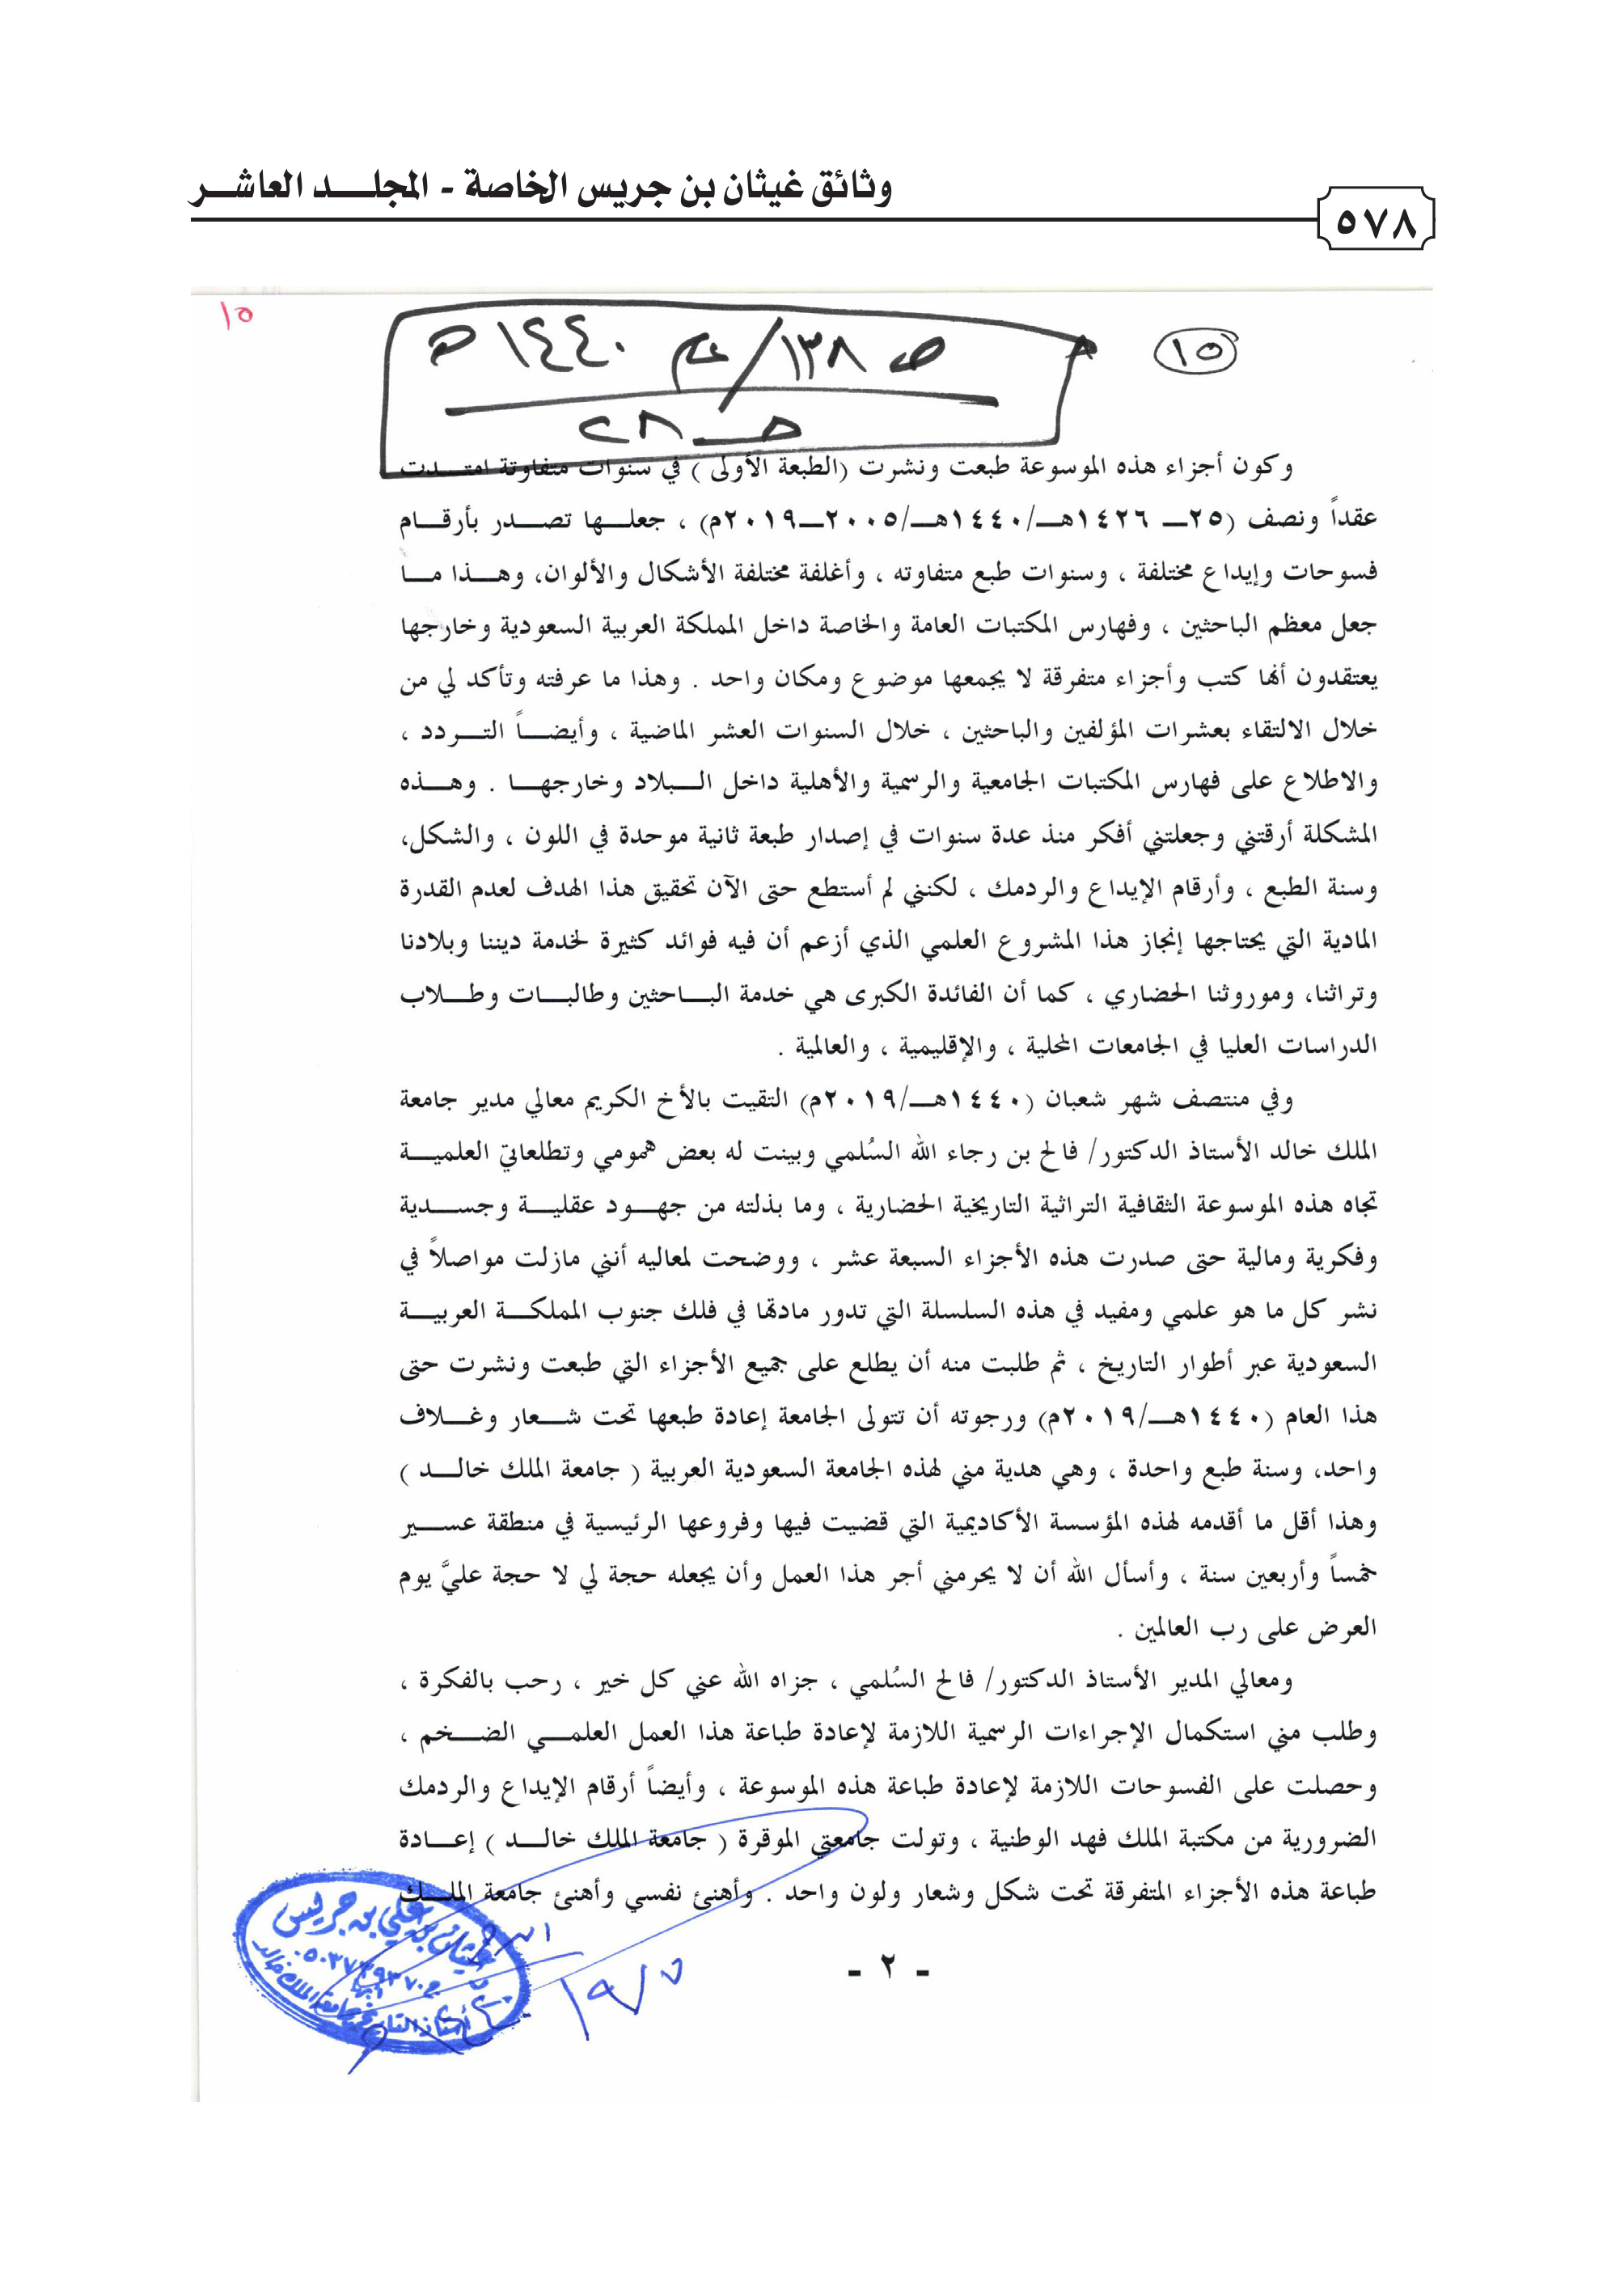 وثائق غيثان بن جريس الخاصة - المجلـــد العاشـــر
٥٧٨
١٥
١٥
ص ١٣٨/ عام ١٤٤٠هـ
وكون أجزاء هذه الموسوعة طبعت ونشرت (الطبعة الأولى ) في سنوات متفاوتة امتـــدت
عقداً ونصف (٢٥ـــ ١٤٢٦هـــ/١٤٤٠هـــ/٢٠٠٥ـــ٢٠١٩م) ، جعلـــها تصـــدر بأرقـــام
فسوحات وإيداع مختلفة ، وسنوات طبع متفاوته ، وأغلفة مختلفة الأشكال والألوان، وهـــذا مـــا
جعل معظم الباحثين ، وفهارس المكتبات العامة والخاصة داخل المملكة العربية السعودية وخارجها
يعتقدون أنها كتب وأجزاء متفرقة لا يجمعها موضوع ومكان واحد . وهذا ما عرفته وتأكد لي من
خلال الالتقاء بعشرات المؤلفين والباحثين ، خلال السنوات العشر الماضية ، وأيضـــاً التـــردد ،
والاطلاع على فهارس المكتبات الجامعية والرسمية والأهلية داخل الـــبلاد وخارجهـــا . وهـــذه
المشكلة أرقتني وجعلتني أفكر منذ عدة سنوات في إصدار طبعة ثانية موحدة في اللون ، والشكل،
وسنة الطبع ، وأرقام الإيداع والردمك ، لكنني لم أستطع حتى الآن تحقيق هذا الهدف لعدم القدرة
المادية التي يحتاجها إنجاز هذا المشروع العلمي الذي أزعم أن فيه فوائد كثيرة لخدمة ديننا وبلادنا
وتراثنا، وموروثنا الحضاري ، كما أن الفائدة الكبرى هي خدمة البـــاحثين وطالبـــات وطـــلاب
الدراسات العليا في الجامعات المحلية ، والإقليمية ، والعالمية .
وفي منتصف شهر شعبان (١٤٤٠هـــ/٢٠١٩م) التقيت بالأخ الكريم معالي مدير جامعة
الملك خالد الأستاذ الدكتور/ فالح بن رجاء الله السُلمي وبينت له بعض همومي وتطلعاتي العلميـــة
تجاه هذه الموسوعة الثقافية التراثية التاريخية الحضارية ، وما بذلته من جهـــود عقليـــة وجســـدية
وفكرية ومالية حتى صدرت هذه الأجزاء السبعة عشر ، ووضحت لمعاليه أنني مازلت مواصلاً في
نشر كل ما هو علمي ومفيد في هذه السلسلة التي تدور مادتها في فلك جنوب المملكـــة العربيـــة
السعودية عبر أطوار التاريخ ، ثم طلبت منه أن يطلع على جميع الأجزاء التي طبعت ونشرت حتى
هذا العام (١٤٤٠هـــ/٢٠١٩م) ورجوته أن تتولى الجامعة إعادة طبعها تحت شـــعار وغـــلاف
واحد، وسنة طبع واحدة ، وهي هدية مني لهذه الجامعة السعودية العربية ( جامعة الملك خالـــد )
وهذا أقل ما أقدمه لهذه المؤسسة الأكاديمية التي قضيت فيها وفروعها الرئيسية في منطقة عســـير
خمساً وأربعين سنة ، وأسأل الله أن لا يحرمني أجر هذا العمل وأن يجعله حجة لي لا حجة عليَّ يوم
العرض على رب العالمين .
ومعالي المدير الأستاذ الدكتور/ فالح السُلمي ، جزاه الله عني كل خير ، رحب بالفكرة ،
وطلب مني استكمال الإجراءات الرسمية اللازمة لإعادة طباعة هذا العمل العلمـــي الضـــخم ،
وحصلت على الفسوحات اللازمة لإعادة طباعة هذه الموسوعة ، وأيضاً أرقام الإيداع والردمك
الضرورية من مكتبة الملك فهد الوطنية ، وتولت جامعتي الموقرة ( جامعة الملك خالـــد ) إعـــادة
طباعة هذه الأجزاء المتفرقة تحت شكل وشعار ولون واحد . وأهنئ نفسي وأهنئ جامعة الملـــك
- ٢ -
غيثان بن علي بن جريس
أستاذ التاريخ بجامعة الملك خالد